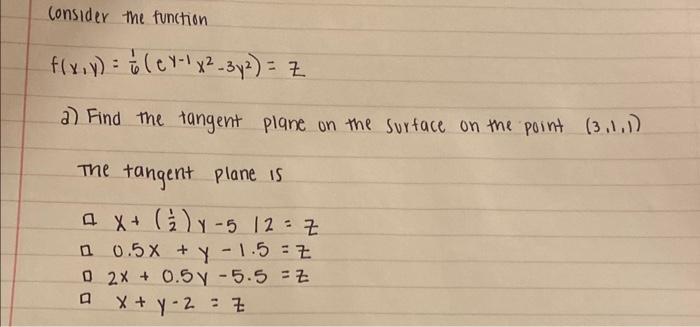 Consider the function
f(x,y) = 1/6 (e^y-1 x² - 3y²) = z
a) Find the tangent plane on the surface on the point (3,1,1)
The tangent plane is
□ x + (1/2) y - 5 / 2 = z
□ 0.5x + y - 1.5 = z
□ 2x + 0.5y - 5.5 = z
□ x + y - 2 = z